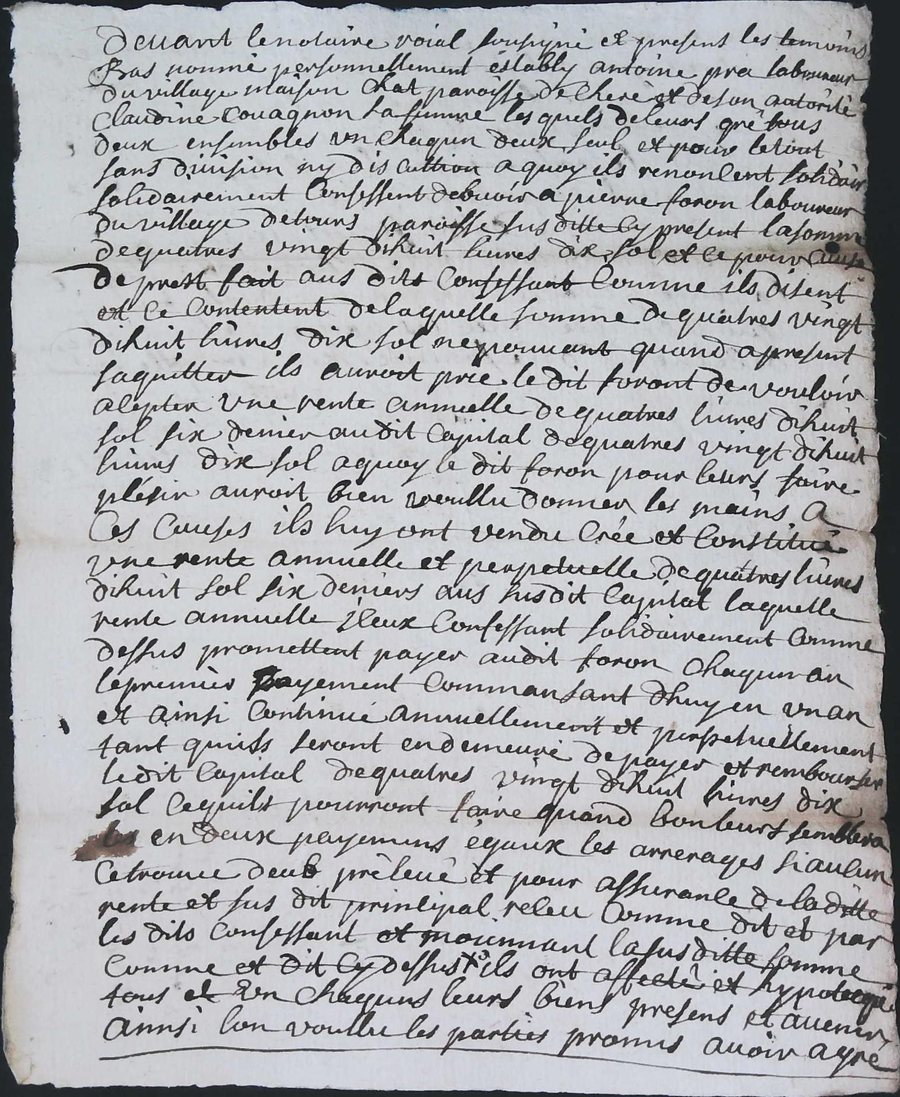 devant le notaire roial sousigné et present les temoins
bas nommé personnellement estably antoine pra laboureur
du village maison Chat paroisse de Cheré et de son autorité
Claudine Couagnon sa femme lesquels de leurs gré tous
deux ensembles un Chaqun deux seul et pour le tout
sans division ny discuttion a quoy ils renoncent solidair
solidairement Confessent debvoir a pierre foron laboureur
du village de tours paroisse susditte Cy present la somme
de quatres vingt dihuit livres dix sol et ce pour cause
de prest fait aus dits Confessant Comme ils disent
et ce Contentent de laquelle somme de quatres vingt
dihuit livres dix sol ne pouvant quand apresent
saquitter ils auroit prie le dit foront de vouloir
alepter une rente annuelle de quatres livres dihuit
sol six denier audit Capital de quatres vingt dihuit
livres dix sol a quoy le dit foron pour leurs faire
plésir auroit bien voullu donner les mains A
Ces Causes ils luy ont vendu Crée et Constitué
une rente annuelle et perpetuelle de quatres livres
dihuit sol six deniers aus susdit Capital laquelle
rente annuelle iceux Confessant solidairement Comme
dessus promettent payer audit foron Chaqun an
le premier payement Commansant dhuy en un an
et ainsi Continué annuellement et perpetuellement
tant quiss seront en demeure de payer et rembourser
ledit Capital de quatres vingt dihuit livres dix
sol ce quils pourront faire quand bon leurs semblera
en deux payemens égaux les arrerages si aulun
ce trouve deub prélevé et pour assurance de la ditte
rente et sus dit principal releu Comme dit et par
les dits Confessant et moiennant la sus ditte somme
Comme et dit Cy dessus ils ont affecté et hypotequé
tous et un Chaquns leurs biens presens et avenir
ainsi lon voullu les parties promis avoir agré